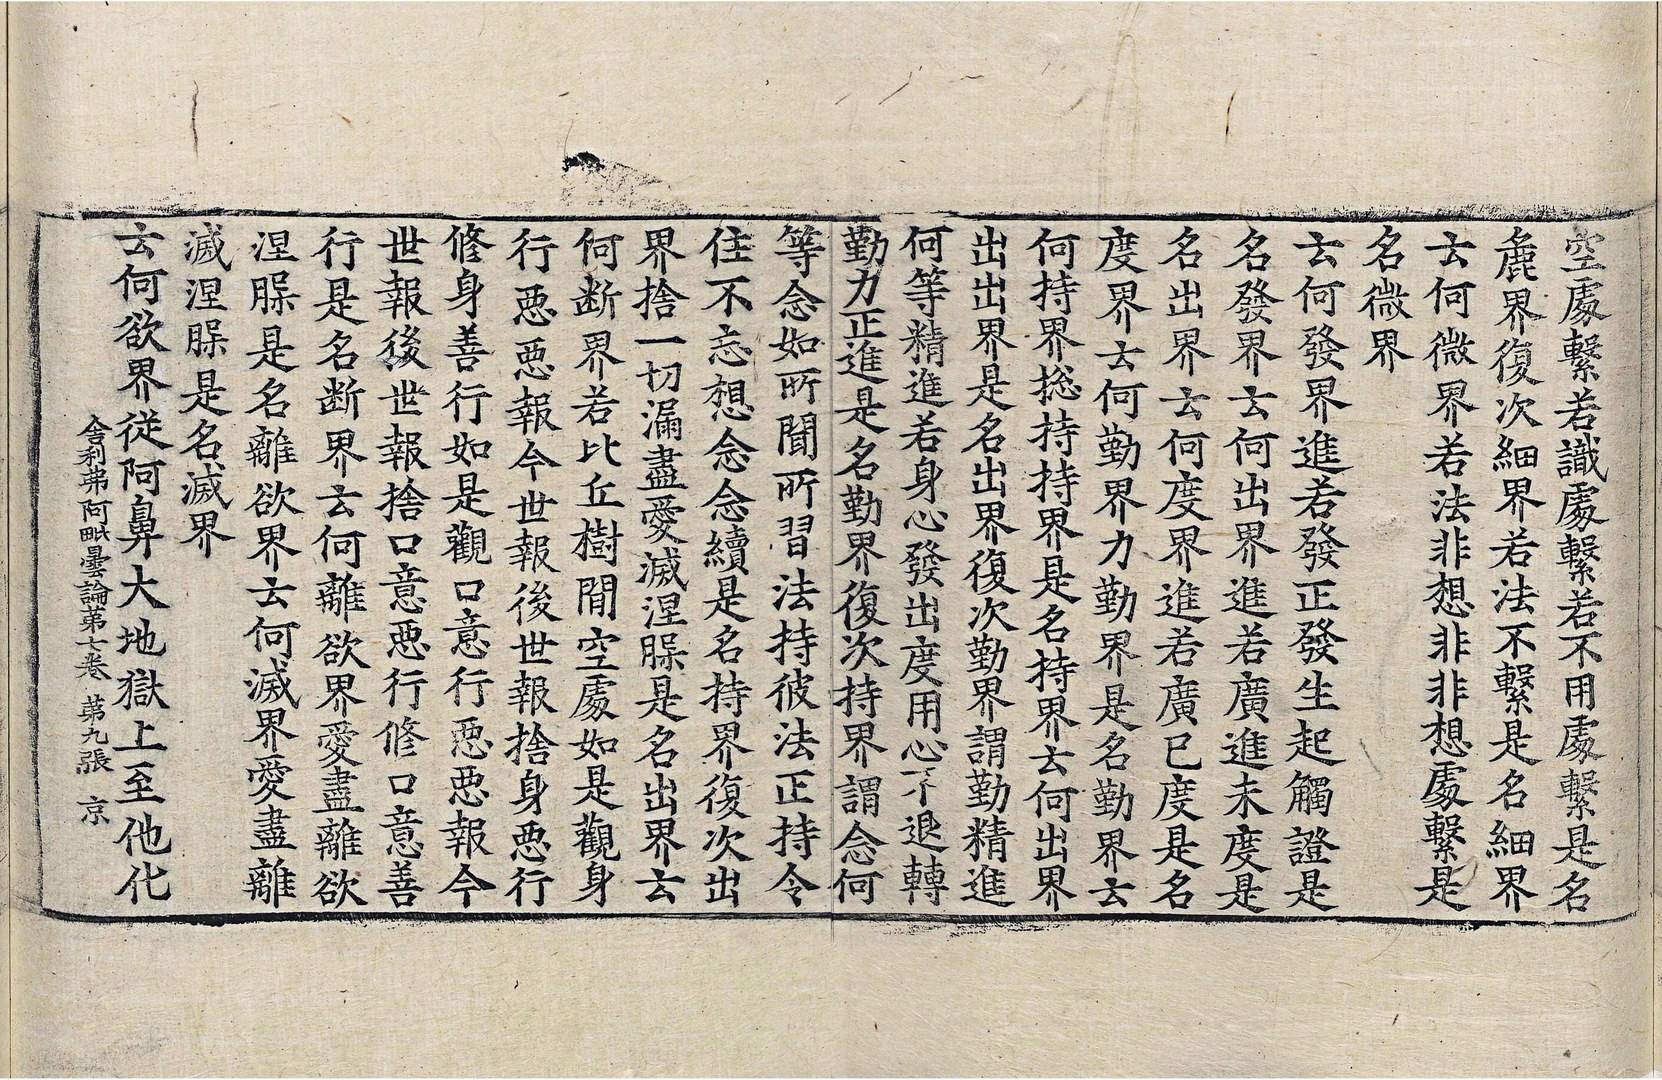 空處繫若識處繫若不用處繫是名
麁界復次細界若法不繫是名細界
云何微界若法非想非非想處繫是
名微界
云何發界進若發發正發生起觸證是
名發界云何出界進若廣進未度是
名出界云何度界進若廣已度是名
度界云何勤界力勤界是名勤界云
何持界捴持持界是名持界云何出界
出出界是名出界復次勤界謂勤精進
何等精進若身心發出度用心不退轉
勤力正進是名勤界復次持界謂念何
等念如所聞所習法持彼法正持令
住不忘想念念續是名持界復次出
界捨一切漏盡愛滅涅槃是名出界云
何断界若比丘樹間空處如是觀身
行惡惡報今世報後世報捨身惡行
修身善行如是觀口意行惡惡報今
世報後世報捨口意惡行修口意善
行是名断界云何離欲界愛盡離欲
涅槃是名離欲界云何滅界愛盡離
滅涅槃是名滅界
云何欲界從阿鼻大地獄上至他化
舍利弗阿毗曇論第七卷 第九張 京